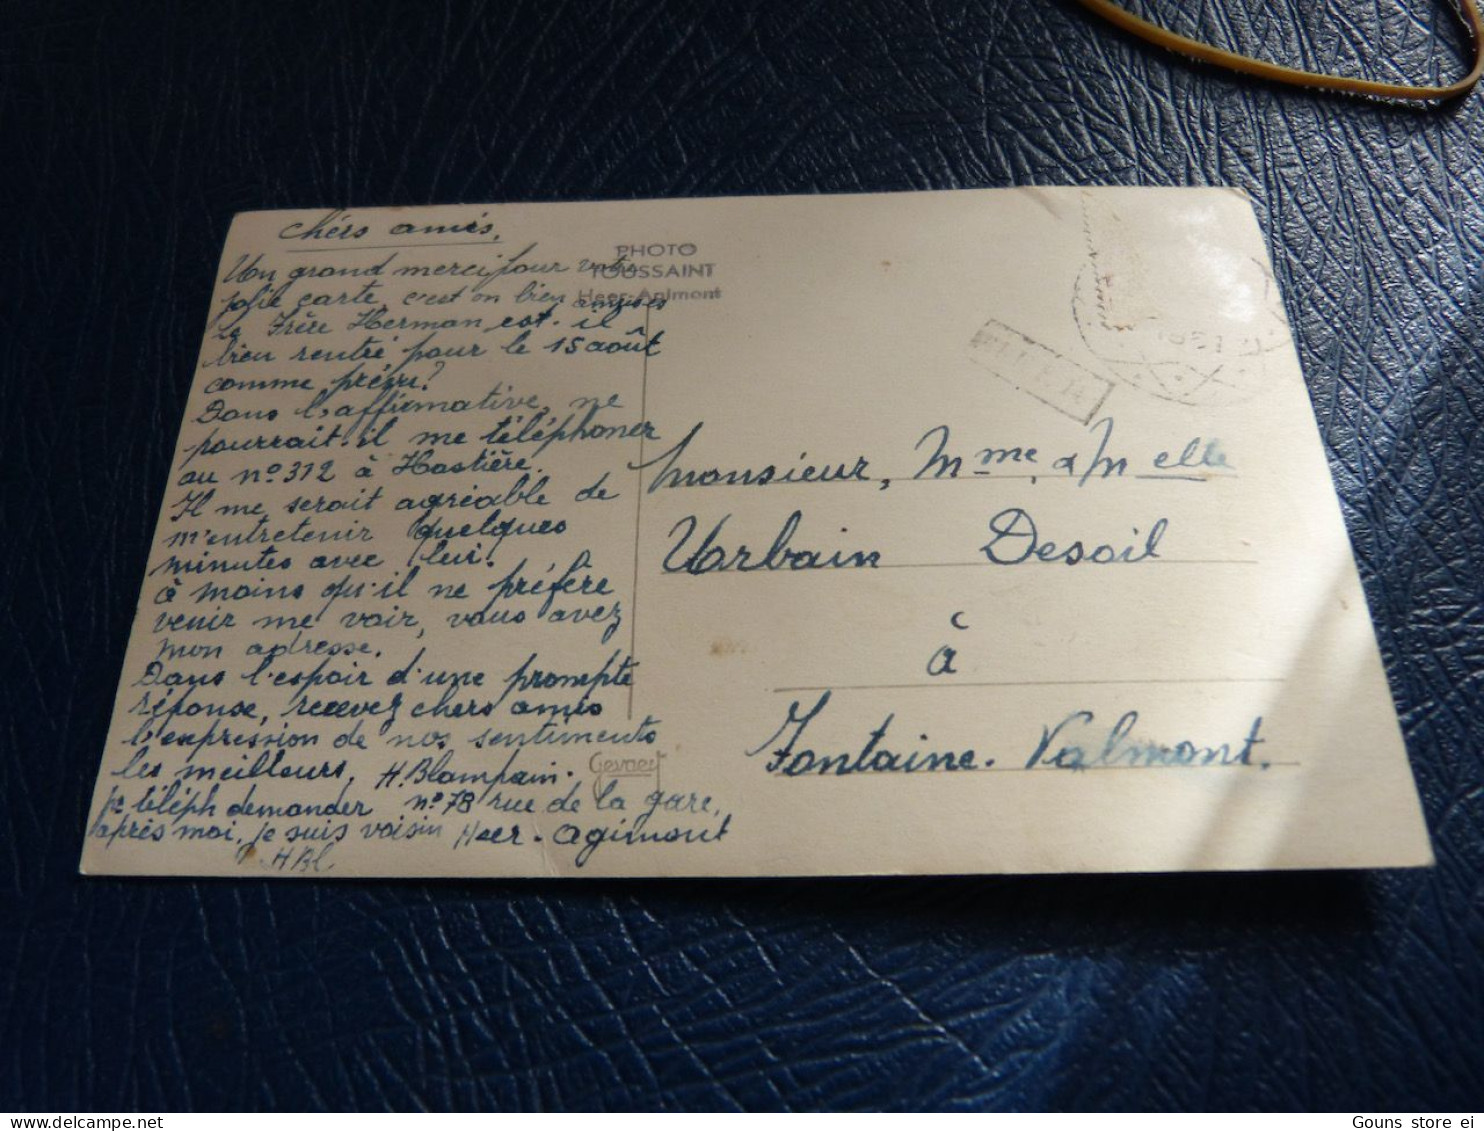 Chérs amis,
Un grand merci pour votre
jolie carte, c'est on bien amusés
Le Frère Herman est-il
bien rentré pour le 15 août
comme prévu?
Dans l'affirmative, ne
pourrait-il me téléphoner
au n° 312 à Hastière.
Il me serait agréable de
m'entretenir quelques
minutes avec lui.
à moins qu'il ne préfère
venir me voir, vous avez
mon adresse.
Dans l'espoir d'une prompte
réponse, recevez chers amis
l'expression de nos sentiments
les meilleurs. H. Blampain.
pr téléph demander n° 78 rue de la gare,
après moi, je suis voisin Heer-Agimont
HBl
PHOTO
TOUSSAINT
Heer-Agimont
Gevaert
1951
Monsieur, Mme, & Melle
Urbain Desoil
à
Fontaine-Valmont.
Gouns store ei